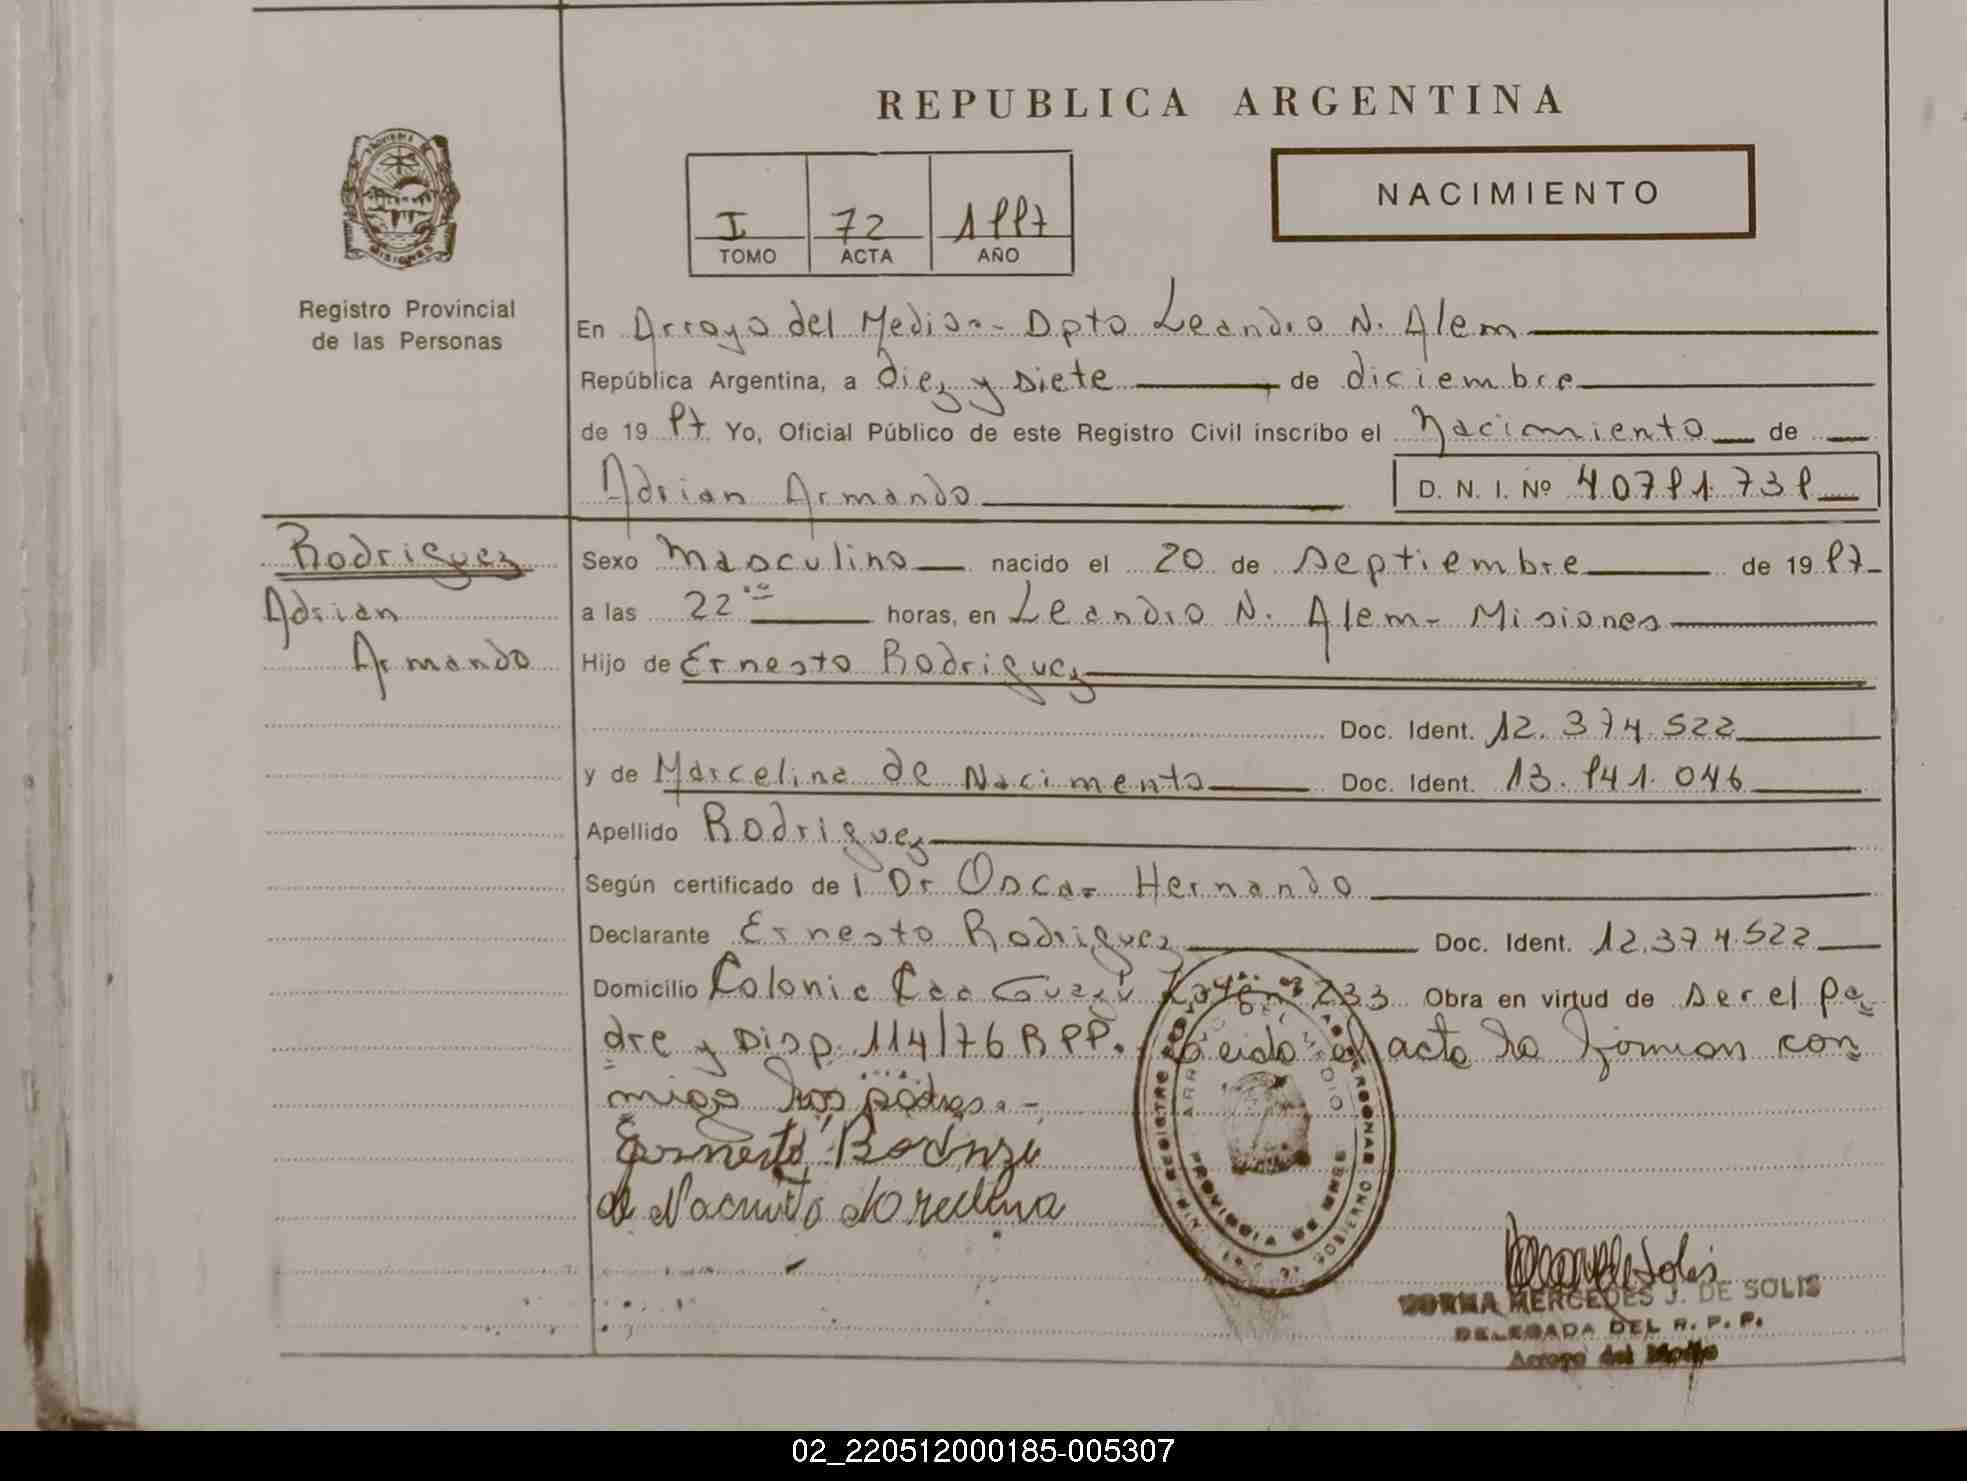 REPUBLICA ARGENTINA
NACIMIENTO
I 72 1997
TOMO ACTA AÑO
Registro Provincial
de las Personas
En Arroyo del Medio.- Dpto Leandro N. Alem
República Argentina, a diez y siete de diciembre
de 19 97 Yo, Oficial Público de este Registro Civil inscribo el Nacimiento de
Adrian Armando D. N. I. Nº 40791.739
Rodriguez
Adrian
Armando
Sexo Masculino nacido el 20 de septiembre de 19 97
a las 22 00 horas, en Leandro N. Alem - Misiones
Hijo de Ernesto Rodriguez
Doc. Ident. 12.374.522
y de Marcelina de Nacimento Doc. Ident. 13.941.046
Apellido Rodriguez
Según certificado de l Dr Oscar Hernando
Declarante Ernesto Rodriguez Doc. Ident. 12.374.522
Domicilio Colonia Caa Guazú Lote nº 233 Obra en virtud de ser el pa-
dre y Disp. 114/76 RPP. Leida el acta la firman con-
migo los padres.-
Ernesto Rodrigu
de Nacimento
PROVINCIA DE MNES
ARROYO DEL MEDIO
NORMA MERCEDES J. DE SOLIS
DELEGADA DEL R. P. P.
Arroyo del Medio
02_220512000185-005307